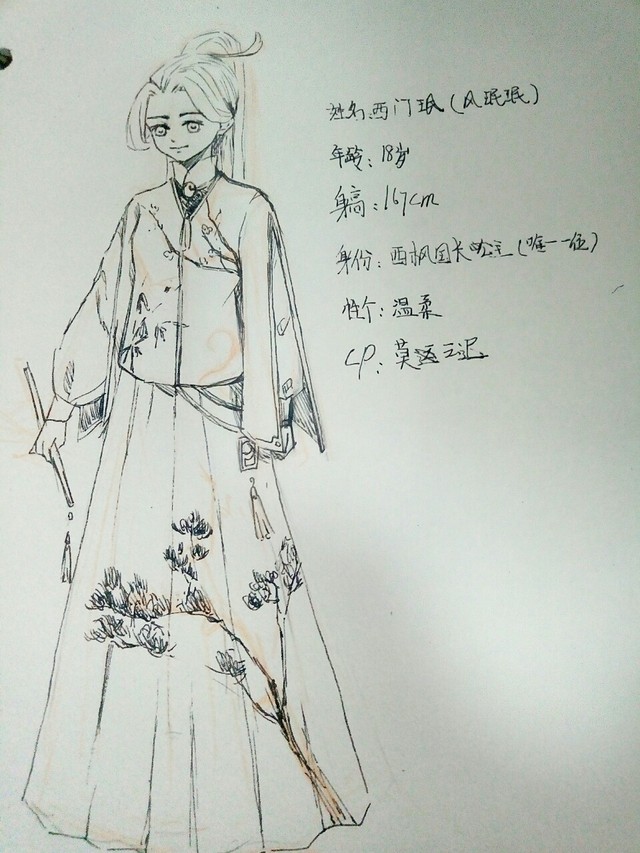 姓名:西门珉(风珉珉)
年龄:18岁
身高:167cm
身份:西枫国长公主(唯一一位)
性个:温柔
CP:莫迟